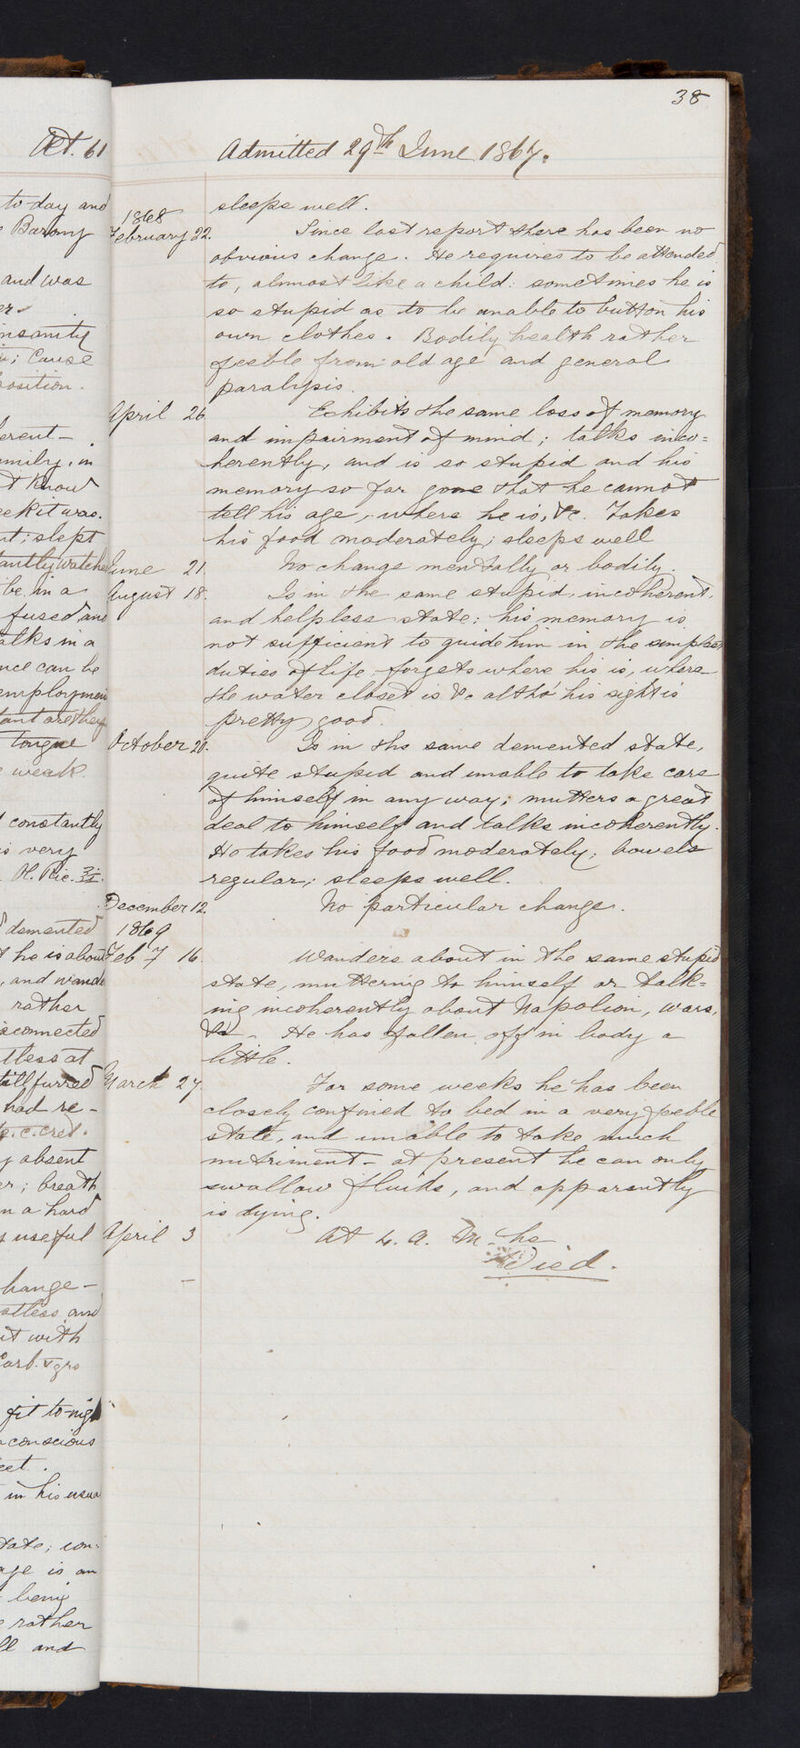 38
Aet. 61
Admitted 29th June 1867.
to day and
Barony
and was
insanity
Cause
position.
erent
family, in
t know
eek it was.
t; slept
antly watche
be in a
fused and
alks in a
nce can be
employmen
tongue
weak
constantly
is very
demented
t he is about
, and wande
rather
isconnected
tless at
still furred
had re-
y absent
er; breath
in a hard
s useful
hange -
estless and
it with
fit to-nig
conscious
eet.
in his usua
tate; con-
age is an
being
rather
ll and
sleeps well.
1868
February 22. Since last report there has been no
obvious change. He requires to be attended
to, almost like a child: sometimes he is
so stupid as to be unable to button his
own clothes. Bodily health rather
feeble from old age and general
paralysis.
April 26 Exhibits the same loss of memory
and impairment of mind; talks inco=
herently, and is so stupid and his
memory so far gone that he cannot
tell his age, where he is, &c. Takes
his food moderately; sleeps well
June 21. No change mentally or bodily.
August 18. Is in the same stupid, incoherent,
and helpless state: his memory is
not sufficient to guide him in the simplest
duties of life, forgets where his is, where
the water closet is &c. altho' his sight is
pretty good.
October 20. Is in the same demented state,
quite stupid and unable to take care
of himself in any way; mutters a great
deal to himself and talks incoherently.
He takes his food moderately; bowels
regular; sleeps well.
December 12. No particular change.
1869
Feb 7 16. Wanders about in the same stupid
state, muttering to himself or talk=
ing incoherently about Napolion, wars,
&c - He has fallen off in body a
little.
March 27 For some weeks he has been
closely confined to bed in a very feeble
state, and unable to take much
nutriment - at present he can only
swallow fluids, and apparently
is dying.
April 3 At 4. a. m. he
Died.